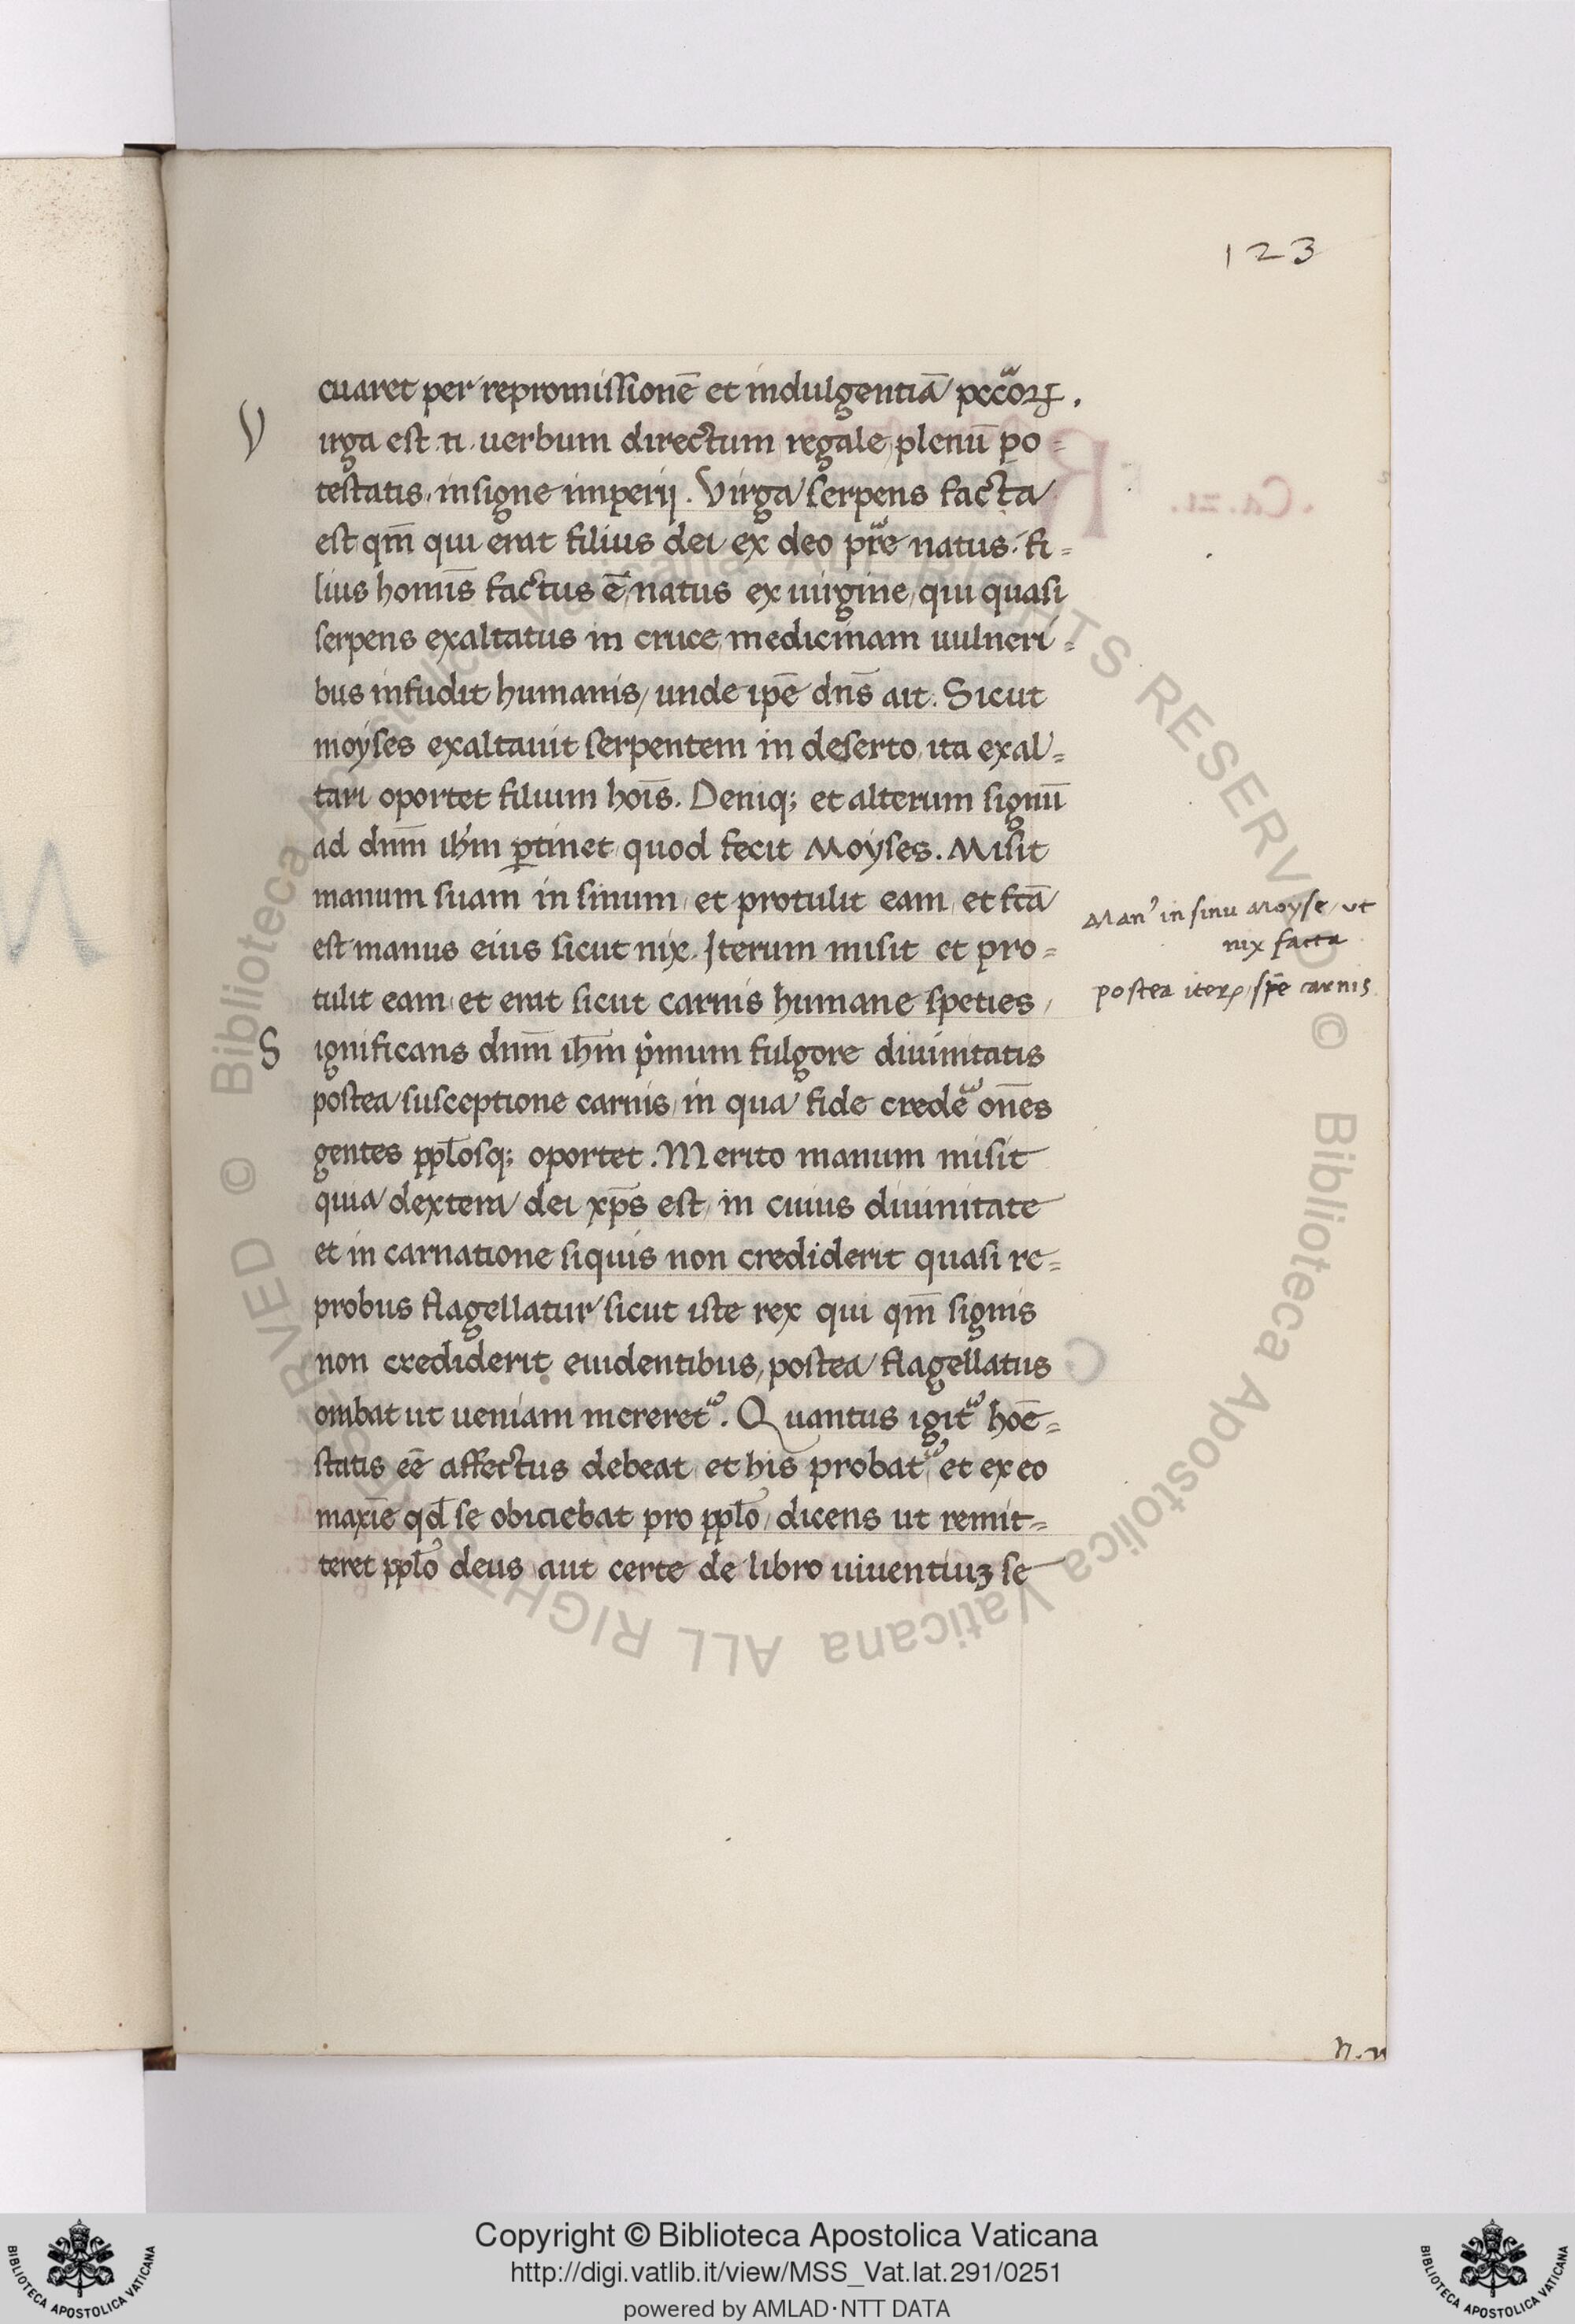 123
cuaret per repromissionē et indulgentiā pccoꝝ.
Virga est .n. uerbum directum regale plenū po=
testatis, insigne imperij. Virga serpens facta
est qm̄ qui erat filius dei ex deo pre natus. fi=
lius homīs factus ē, natus ex uirgine, qui quasi
serpens exaltatus in cruce medicinam uulneri=
bus infudit humanis, unde ipē dn̄s ait. Sicut
moyses exaltauit serpentem in deserto, ita exal=
tari oportet filium hoīs. Deniq; et alterum signū
ad dnm̄ ihm̄ ꝑtinet quod fecit Moyses. Misit
manum suam in sinum, et protulit eam, et fcā
est manus eius sicut nix. Iterum misit et pro=
tulit eam, et erat sicut carnis humane speties,
Significans dnm̄ ihm̄ pͥmum fulgore diuinitatis
postea susceptione carnis, in qua fide credē on̄es
gentes pplōsq; oportet. Merito manum misit
quia dextera dei xp̄s est, in cuius diuinitate
et in carnatione siquis non crediderit quasi re=
probus flagellatur sicut iste rex qui qm̄ signis
non crediderit euidentibus, postea flagellatus
orabat ut ueniam mereret. Quantus igit hoē=
statis eē affectus debeat, et his probat, et ex eo
maxīe qd̄ se obiciebat pro pplō, dicens ut remit=
teret pplō deus aut certe de libro uiuentiuʒ se
Manꝰ in sinu Moyse, ut
nix facta
postea iterꝝ spē carnis
Copyright © Biblioteca Apostolica Vaticana
http://digi.vatlib.it/view/MSS_Vat.lat.291/0251
powered by AMLAD·NTT DATA
BIBLIOTECA APOSTOLICA VATICANA
BIBLIOTECA APOSTOLICA VATICANA
© Biblioteca Apostolica Vaticana ALL RIGHTS RESERVED © Biblioteca Apostolica Vaticana ALL RIGHTS RESERVED